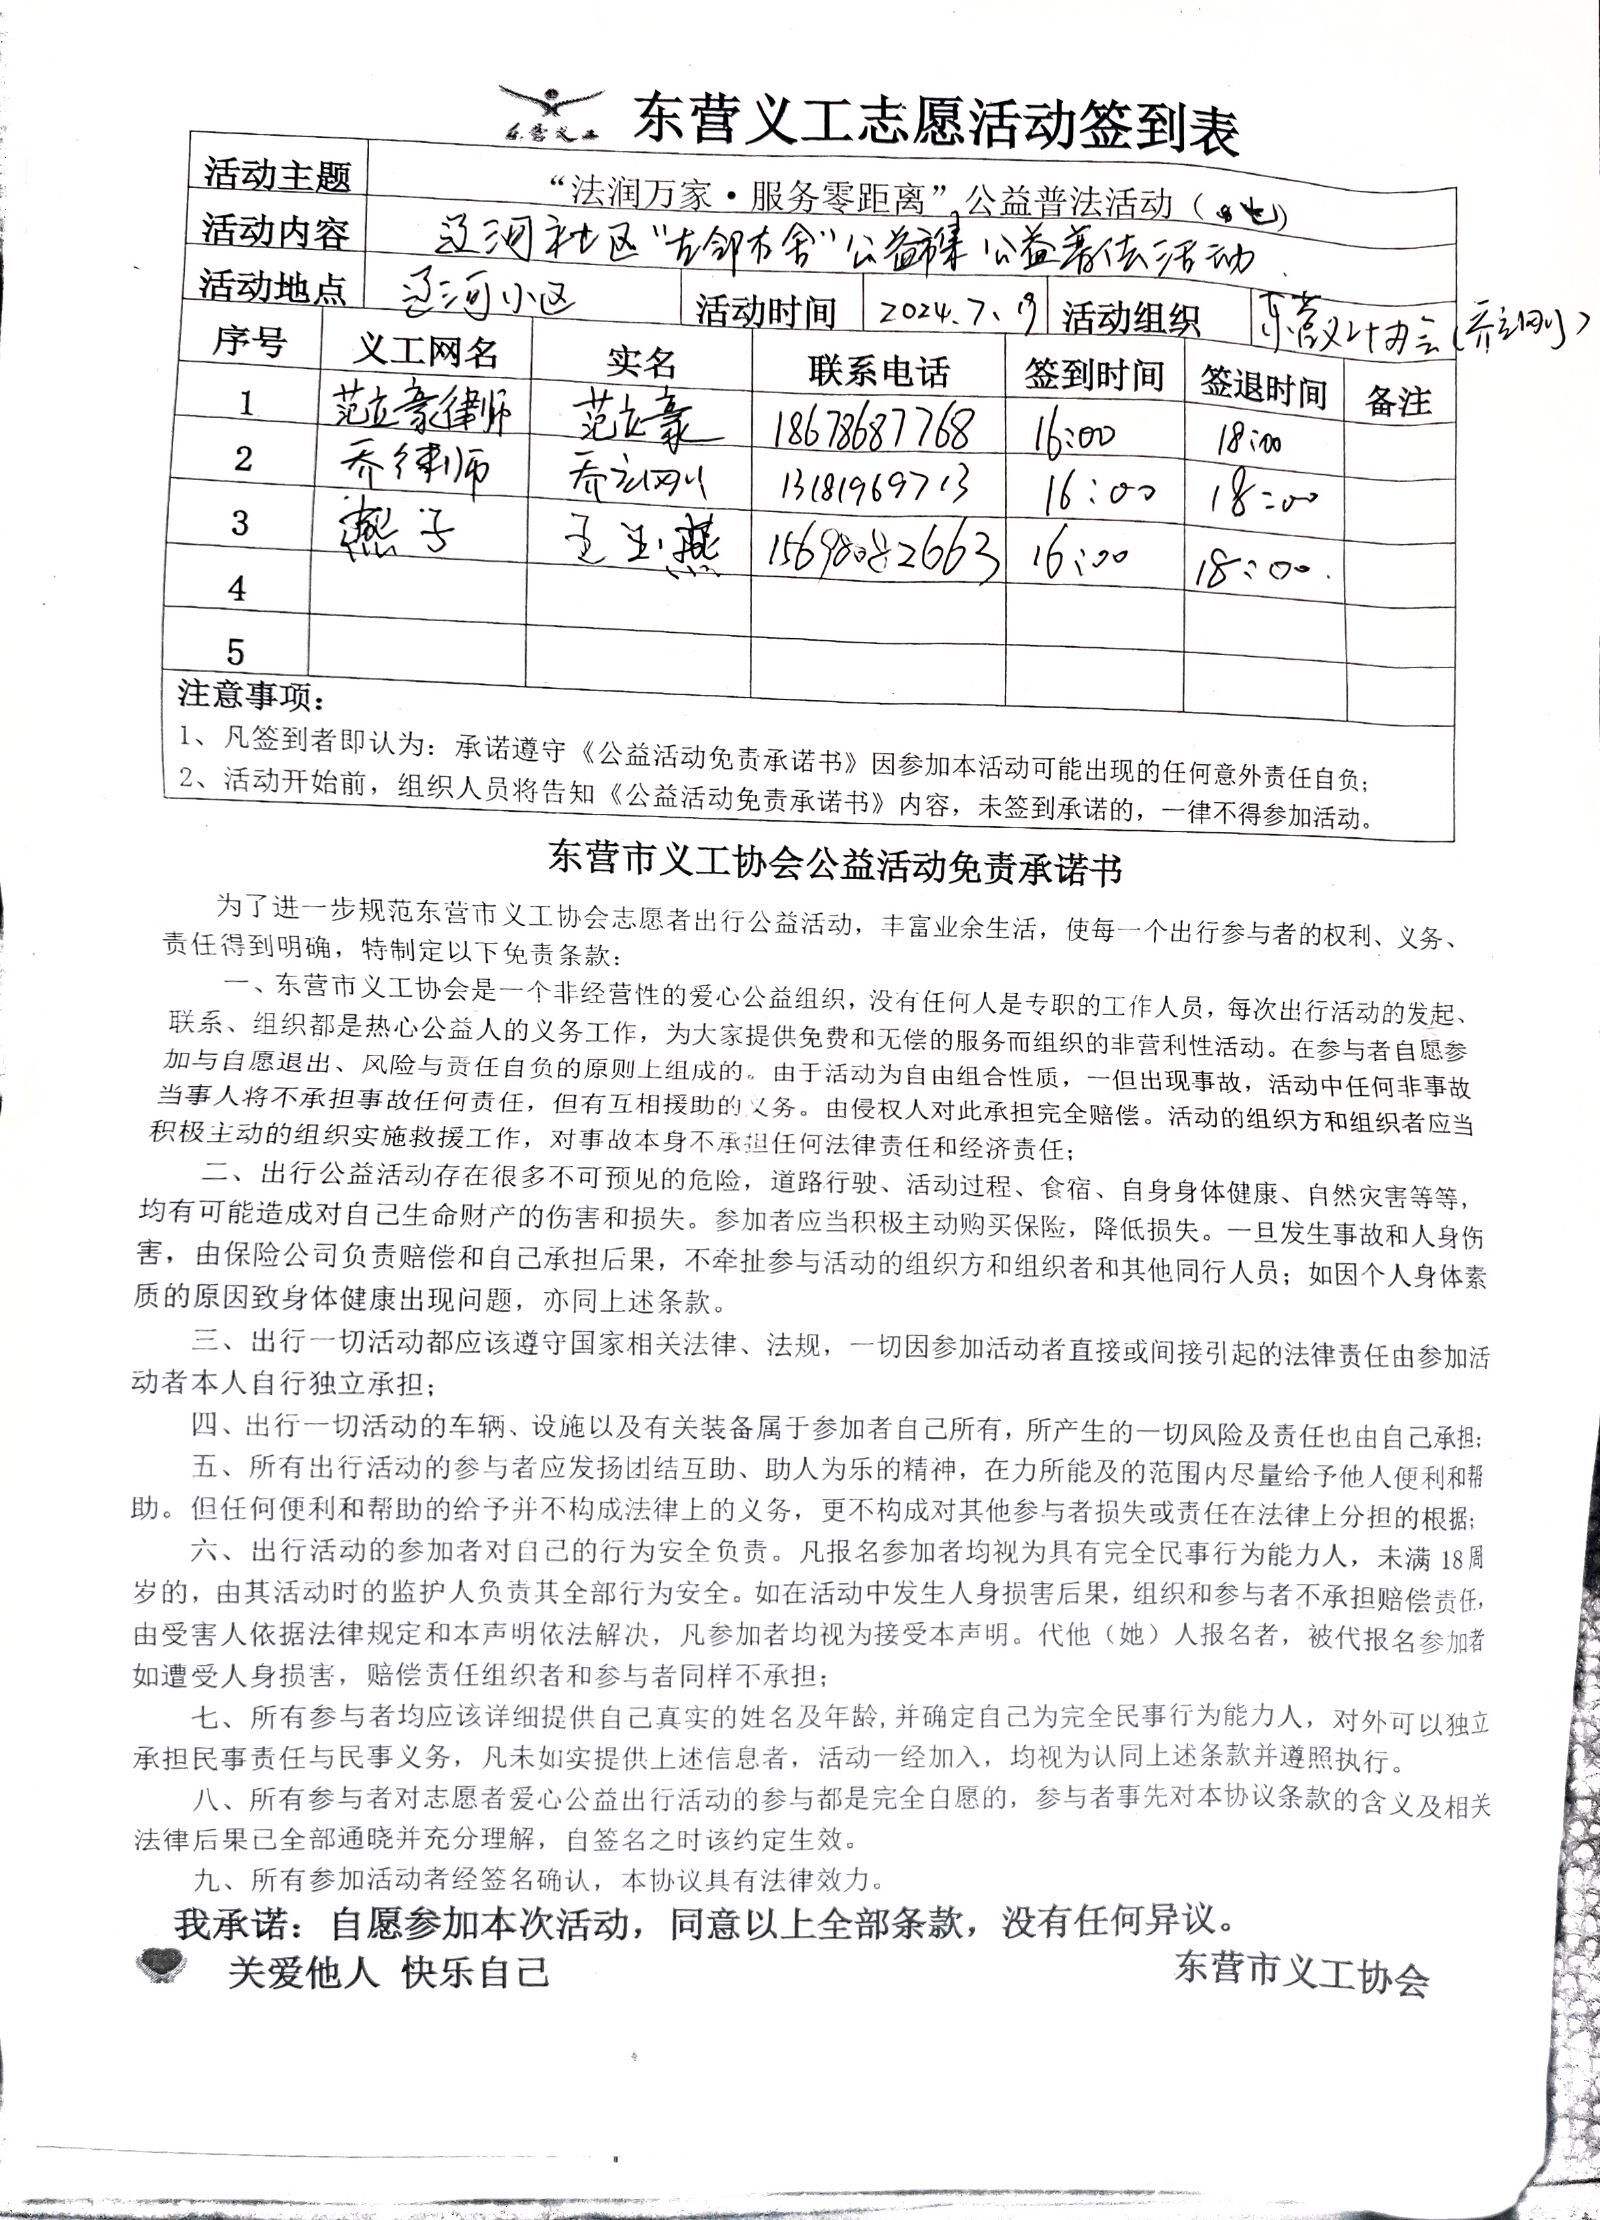 东营义工 东营义工志愿活动签到表
活动主题 “法润万家·服务零距离”公益普法活动（
活动内容 辽河社区“左邻右舍”公益市集公益普法活动
活动地点 辽河小区 活动时间 2024.7. 活动组织 东营义工协会(乔立刚)
序号 义工网名 实名 联系电话 签到时间 签退时间 备注
1 范立豪律师 范立豪 18678687768 16:00 18:00
2 乔律师 乔立刚 13181969713 16:00 18:00
3 燕子 王玉燕 15698082663 16:00 18:00.
4
5
注意事项：
1、凡签到者即认为：承诺遵守《公益活动免责承诺书》因参加本活动可能出现的任何意外责任自负；
2、活动开始前，组织人员将告知《公益活动免责承诺书》内容，未签到承诺的，一律不得参加活动。
东营市义工协会公益活动免责承诺书
为了进一步规范东营市义工协会志愿者出行公益活动，丰富业余生活，使每一个出行参与者的权利、义务、
责任得到明确，特制定以下免责条款：
一、东营市义工协会是一个非经营性的爱心公益组织，没有任何人是专职的工作人员，每次出行活动的发起、
联系、组织都是热心公益人的义务工作，为大家提供免费和无偿的服务而组织的非营利性活动。在参与者自愿参
加与自愿退出、风险与责任自负的原则上组成的。由于活动为自由组合性质，一但出现事故，活动中任何非事故
当事人将不承担事故任何责任，但有互相援助的义务。由侵权人对此承担完全赔偿。活动的组织方和组织者应当
积极主动的组织实施救援工作，对事故本身不承担任何法律责任和经济责任；
二、出行公益活动存在很多不可预见的危险，道路行驶、活动过程、食宿、自身身体健康、自然灾害等等，
均有可能造成对自己生命财产的伤害和损失。参加者应当积极主动购买保险，降低损失。一旦发生事故和人身伤
害，由保险公司负责赔偿和自己承担后果，不牵扯参与活动的组织方和组织者和其他同行人员；如因个人身体素
质的原因致身体健康出现问题，亦同上述条款。
三、出行一切活动都应该遵守国家相关法律、法规，一切因参加活动者直接或间接引起的法律责任由参加活
动者本人自行独立承担；
四、出行一切活动的车辆、设施以及有关装备属于参加者自己所有，所产生的一切风险及责任也由自己承担；
五、所有出行活动的参与者应发扬团结互助、助人为乐的精神，在力所能及的范围内尽量给予他人便利和帮
助。但任何便利和帮助的给予并不构成法律上的义务，更不构成对其他参与者损失或责任在法律上分担的根据；
六、出行活动的参加者对自己的行为安全负责。凡报名参加者均视为具有完全民事行为能力人，未满 18 周
岁的，由其活动时的监护人负责其全部行为安全。如在活动中发生人身损害后果，组织和参与者不承担赔偿责任，
由受害人依据法律规定和本声明依法解决，凡参加者均视为接受本声明。代他（她）人报名者，被代报名参加者
如遭受人身损害，赔偿责任组织者和参与者同样不承担；
七、所有参与者均应该详细提供自己真实的姓名及年龄,并确定自己为完全民事行为能力人，对外可以独立
承担民事责任与民事义务，凡未如实提供上述信息者，活动一经加入，均视为认同上述条款并遵照执行。
八、所有参与者对志愿者爱心公益出行活动的参与都是完全自愿的，参与者事先对本协议条款的含义及相关
法律后果已全部通晓并充分理解，自签名之时该约定生效。
九、所有参加活动者经签名确认，本协议具有法律效力。
我承诺：自愿参加本次活动，同意以上全部条款，没有任何异议。
关爱他人 快乐自己 东营市义工协会